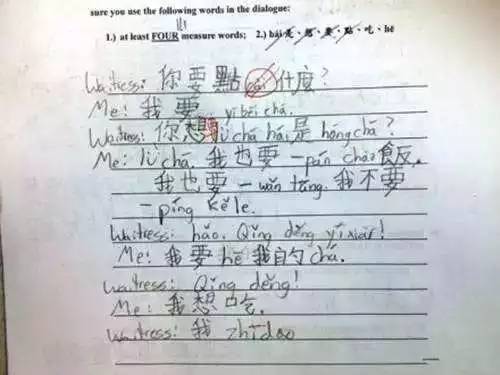 sure you use the following words in the dialogue:
1.) at least FOUR measure words; 2.) hái 是、想、要、點、吃、hē
Waitress: 你要點什麼?
Me: 我要 yì bēi chá.
Waitress: 你想要 lǜ chá hái 是 hóng chá?
Me: lǜ chá. 我也要一 pán chǎo 飯.
我也要一 wǎn tāng. 我不要
一 píng kě lè.
Waitress: hǎo. Qǐng děng yíxiàr!
Me: 我要 hē 我自勺 chá.
Waitress: Qǐng děng!
Me: 我想吃.
Waitress: 我 zhīdao